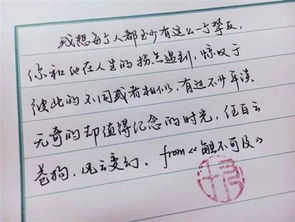 我想每个人都至少有这么一个挚友,
你和他在人生的拐点遇到,惊叹于
彼此的不同或者相似,有过不少平淡
无奇的却值得纪念的时光,任白云
苍狗,风云变幻。from《触不可及》